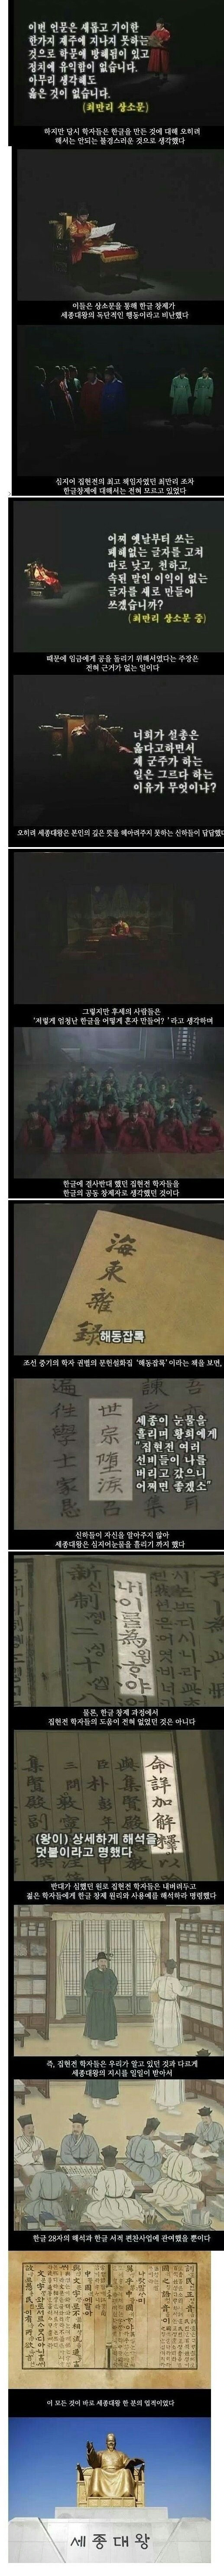 이번 언문은 새롭고 기이한
한가지 재주에 지나지 못하는
것으로 학문에 방해됨이 있고
정치에 유익함이 없습니다.
아무리 생각해도
옳은 것이 없습니다.
(최만리 상소문)
하지만 당시 학자들은 한글을 만든 것에 대해 오히려
해서는 안되는 불경스러운 것으로 생각했다
이들은 상소문을 통해 한글 창제가
세종대왕의 독단적인 행동이라고 비난했다
심지어 집현전의 최고 책임자였던 최만리 조차
한글창제에 대해서는 전혀 모르고 있었다
어찌 옛날부터 쓰는
폐해없는 글자를 고쳐
따로 낮고, 천하고,
속된 말인 이익이 없는
글자를 새로 만들어
쓰겠습니까?
(최만리 상소문 중)
때문에 임금에게 공을 돌리기 위해서였다는 주장은
전혀 근거가 없는 일이다
너희가 설총은
옳다고하면서
제 군주가 하는
일은 그르다 하는
이유가 무엇이냐?
오히려 세종대왕은 본인의 깊은 뜻을 헤아려주지 못하는 신하들이 답답했다
그렇지만 후세의 사람들은
'저렇게 엄청난 한글을 어떻게 혼자 만들어?' 라고 생각하며
한글에 결사반대 했던 집현전 학자들을
한글의 공동 창제자로 생각했던 것이다
海東雜錄
해동잡록
조선 중기의 학자 권별의 문헌설화집 '해동잡록' 이라는 책을 보면,
世宗墮淚
세종이 눈물을
흘리며 황희에게
"집현전 여러
선비들이 나를
버리고 갔으니
어쩌면 좋겠소"
신하들이 자신을 알아주지 않아
세종대왕은 심지어눈물을 흘리기 까지 했다
물론, 한글 창제 과정에서
집현전 학자들의 도움이 전혀 없었던 것은 아니다
命詳加解釋
(왕이) 상세하게 해석을
덧붙이라고 명했다
반대가 심했던 원로 집현전 학자들은 내버려두고
젊은 학자들에게 한글 창제 원리와 사용예를 해석하라 명령했다
즉, 집현전 학자들은 우리가 알고 있던 것과 다르게
세종대왕의 지시를 일일이 받아서
한글 28자의 해석과 한글 서적 편찬사업에 관여했을 뿐이다
이 모든 것이 바로 세종대왕 한 분의 업적이었다
세종대왕